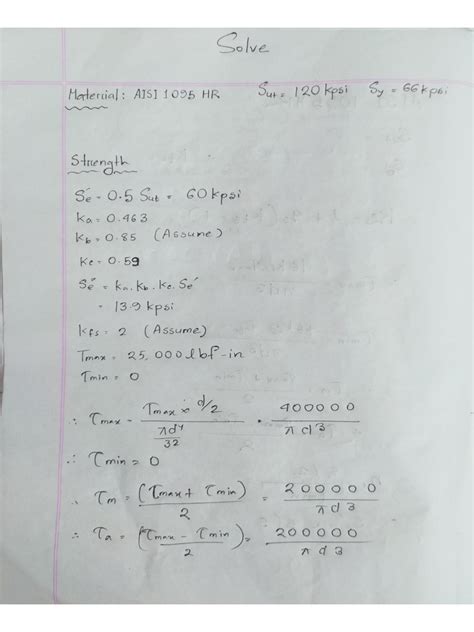 Solve
Material: AISI 1095 HR Sut = 120 kpsi Sy = 66 kpsi
Strength
Sé = 0.5 Sut = 60 kpsi
ka = 0.463
kb = 0.85 (Assume)
kc = 0.59
Se" = ka. kb. kc. Sé
= 13.9 kpsi
kfs = 2 (Assume)
Tmax = 25,000 lbf-in
Tmin = 0
∴ τmax = (Tmax × d/2) / (πd⁴/32) · 400000 / πd3
∴ τmin = 0
∴ τm = (τmax + τmin) / 2 = 200000 / πd3
∴ τa = (τmax - τmin) / 2 = 200000 / πd3